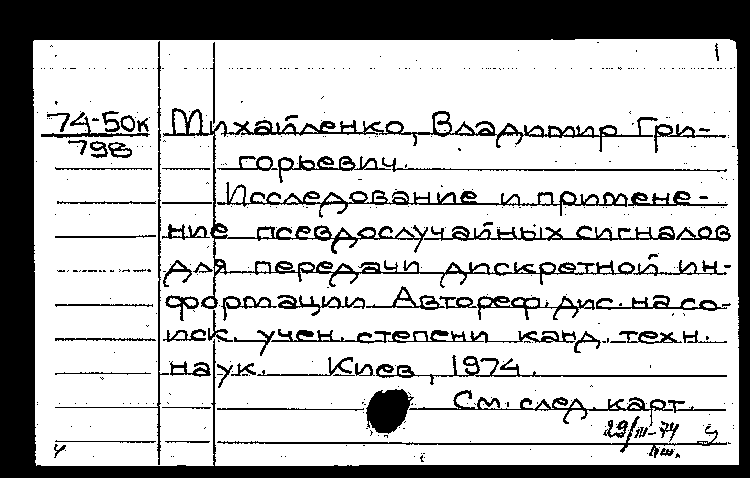 1
74-50к Михайленко, Владимир Гри-
798
горьевич.
Исследование и примене-
ние псевдослучайных сигналов
для передачи дискретной ин-
формации. Автореф. дис. на со-
иск. учен. степени канд. техн.
наук. Киев, 1974.
См. след. карт.
29/III-74